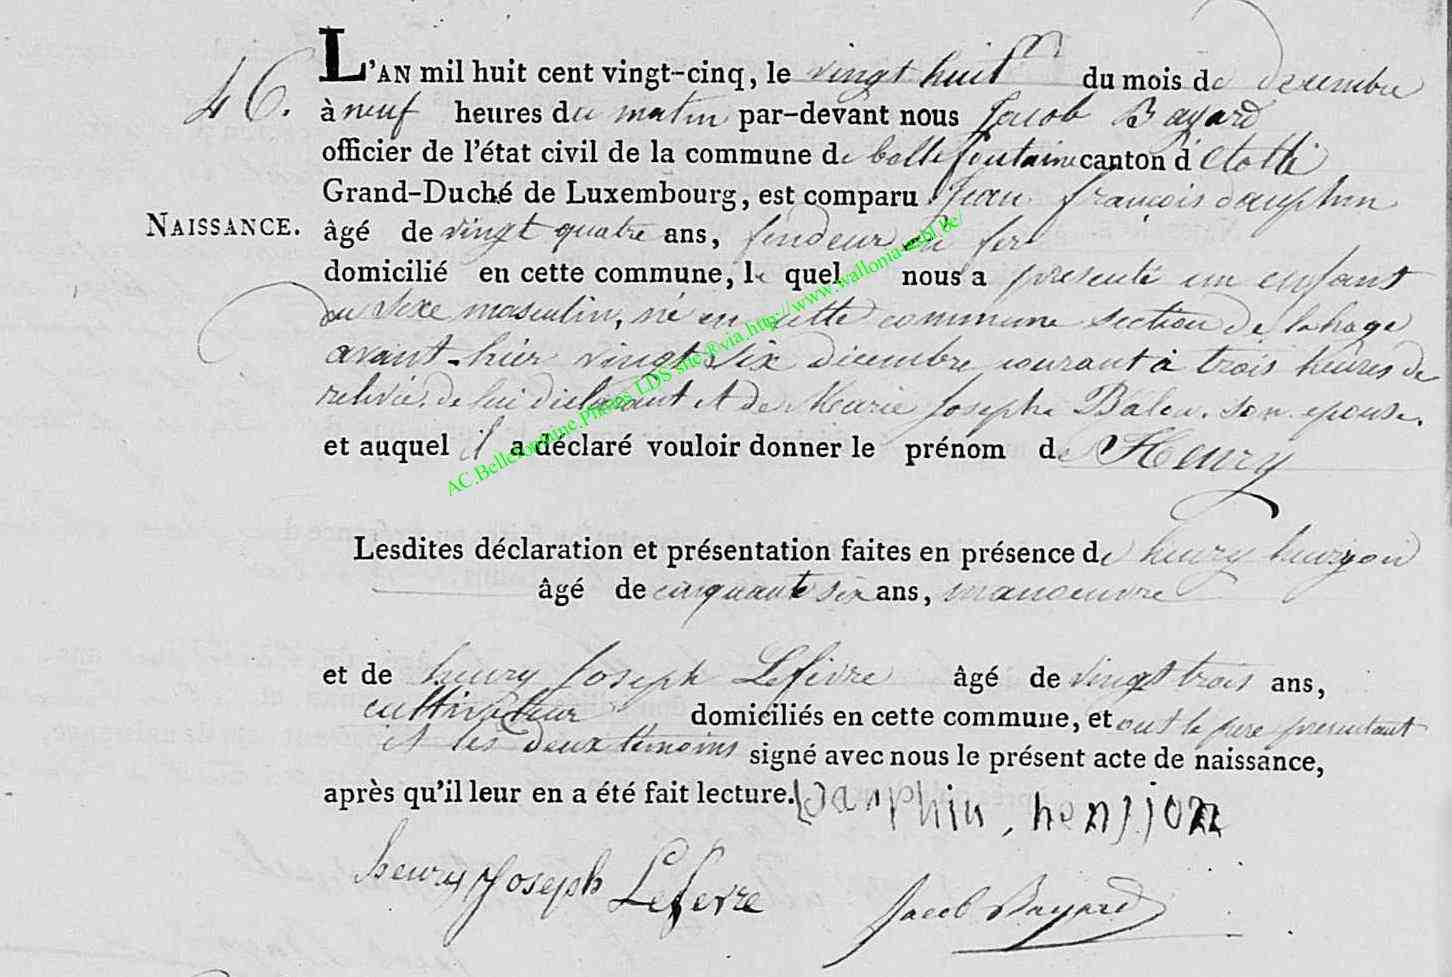 46.
L'AN mil huit cent vingt-cinq, le vingt huit du mois de decembre
à neuf heures du matin par-devant nous Jacob Bayard
officier de l'état civil de la commune de bellefontaine canton d'Etalle
Grand-Duché de Luxembourg, est comparu Jean françois dauphin
NAISSANCE.
âgé de vingt quatre ans, fendeur de fer
domicilié en cette commune, le quel nous a presenté un enfant
du sexe masculin, né en cette commune section de lahage
avant-hier vingt six décembre courant à trois heures de
relevée. de lui déclarant et de Marie Josephe Balen. son epouse.
et auquel il a déclaré vouloir donner le prénom de Henry
Lesdites déclaration et présentation faites en présence de henry
âgé de cinquante six ans, manoeuvre
et de henry Joseph Lefevre âgé de vingt trois ans,
cultivateur domiciliés en cette commune, et ont le pere presentant
et les deux temoins signé avec nous le présent acte de naissance,
après qu'il leur en a été fait lecture. Dauphin,
henry Joseph Lefevre Jacob Bayard
AC.Bellefontaine.Photos LDS site @via.http://www.wallonia-asbl.be/